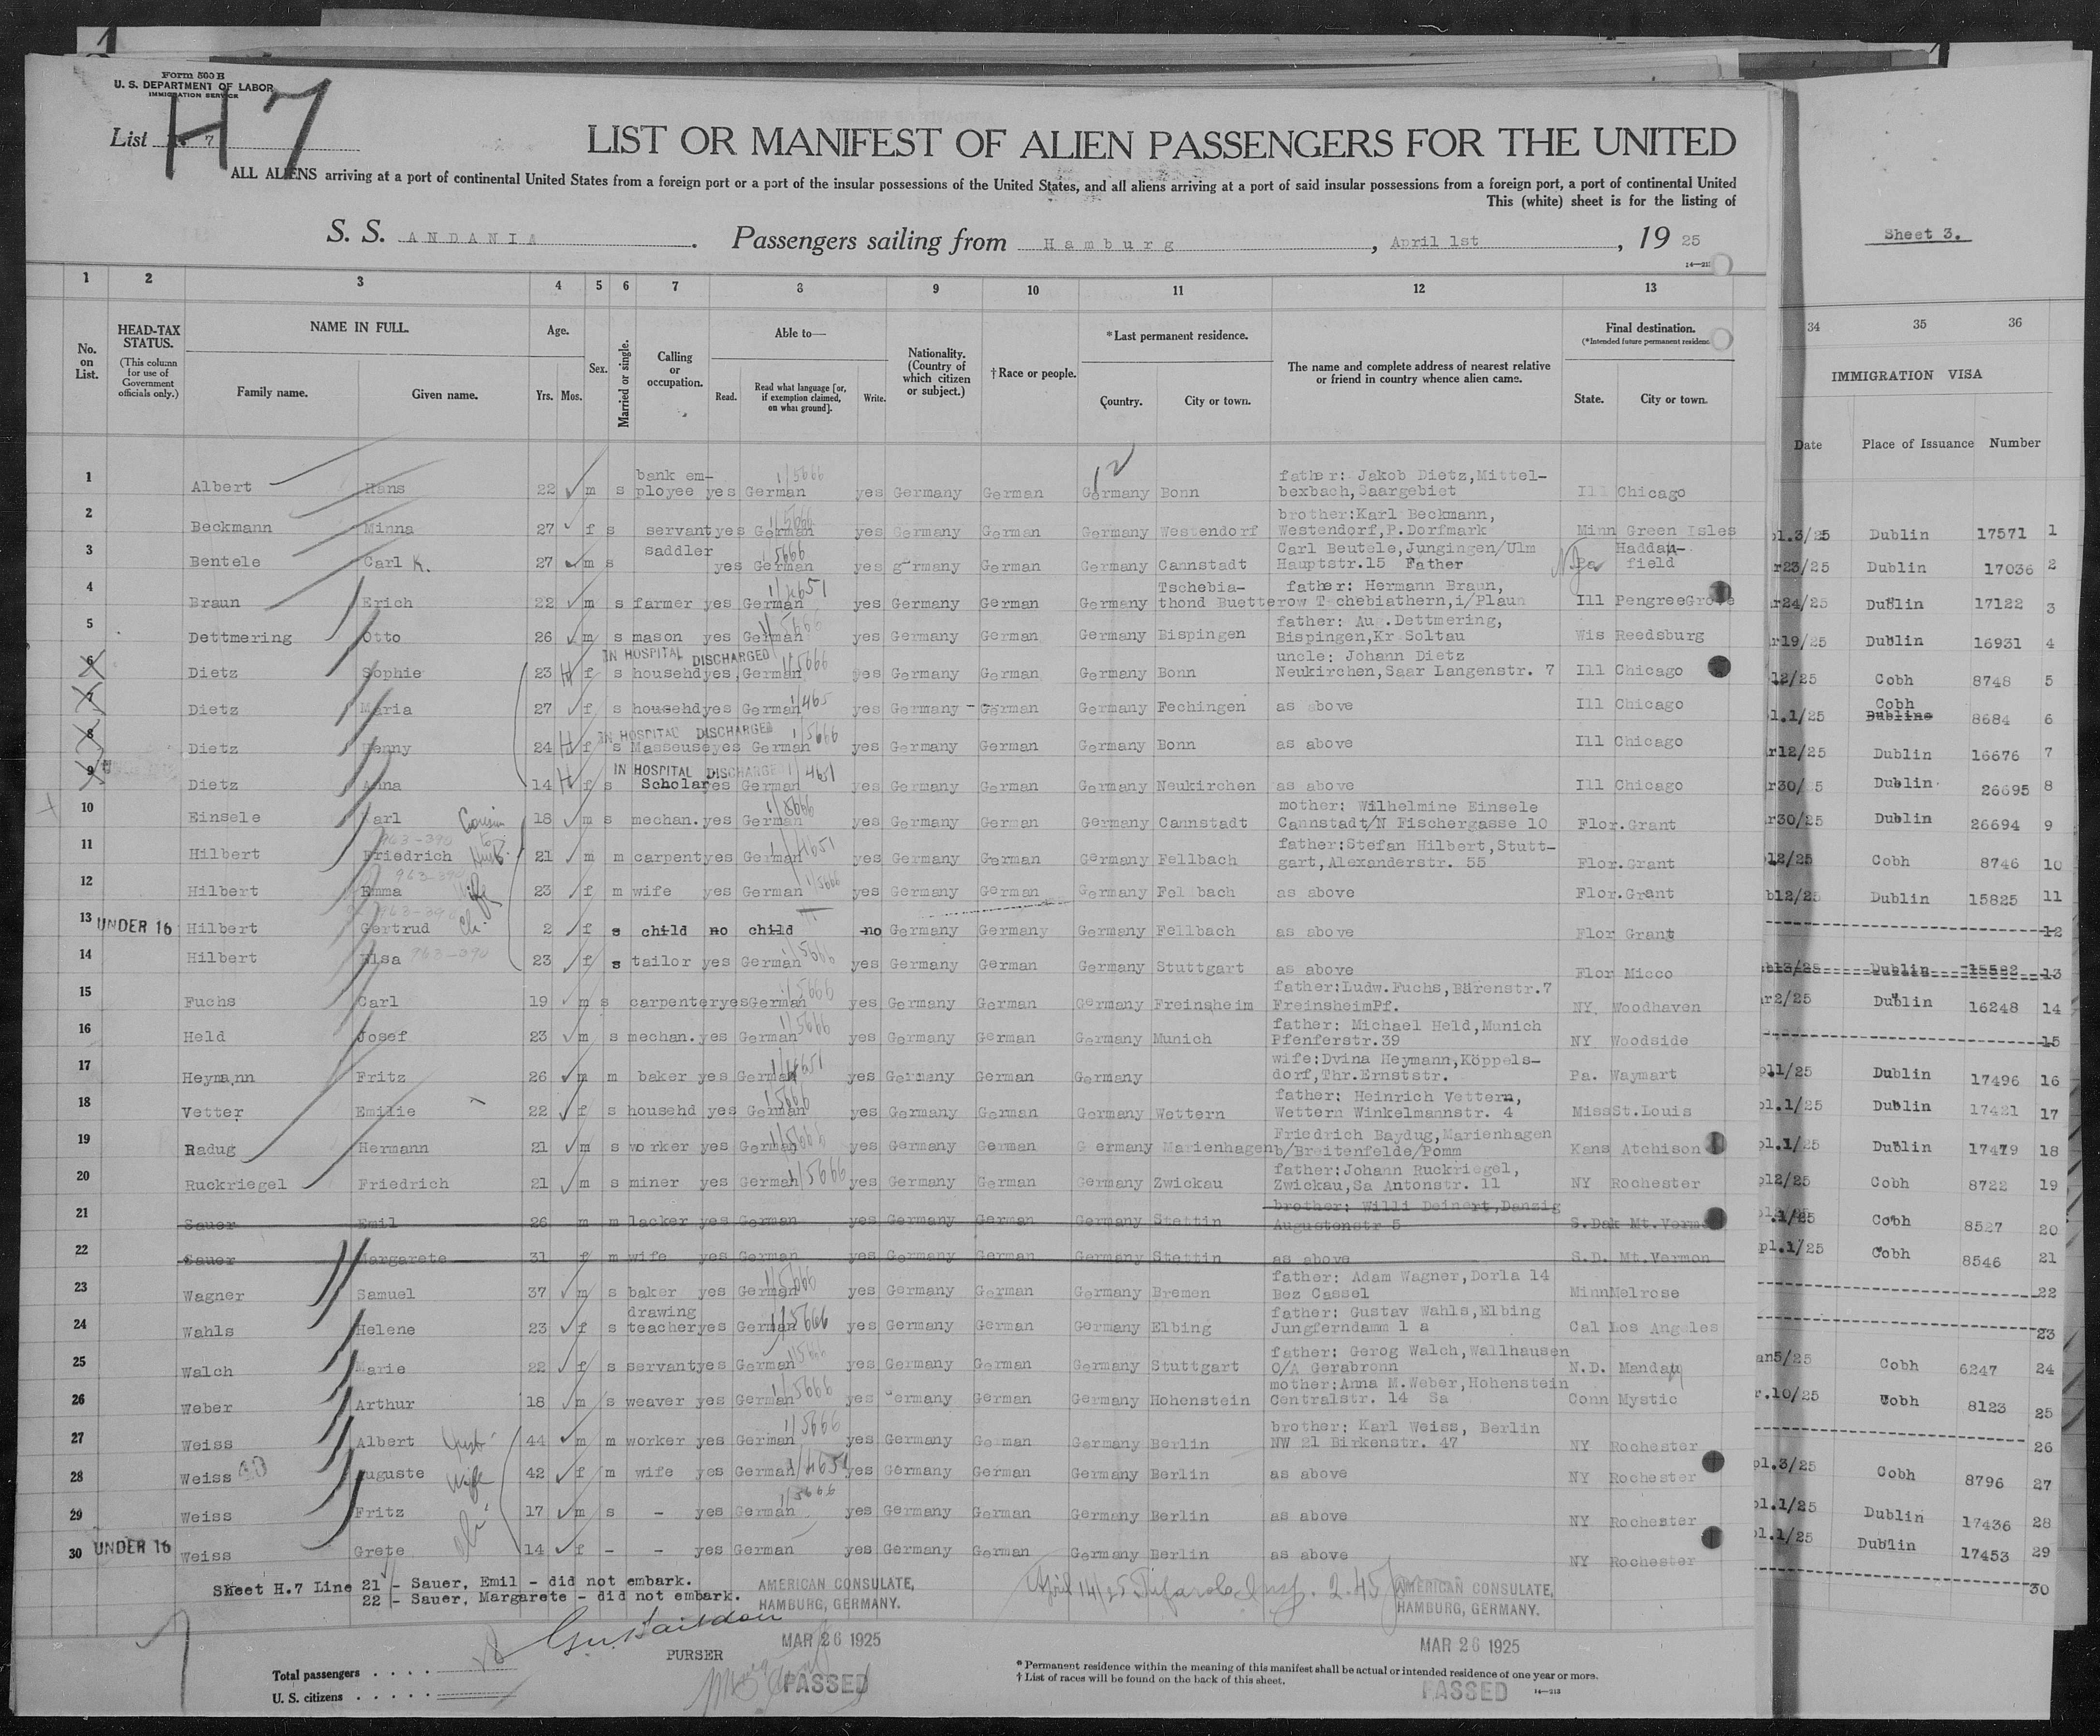 Form 500 B
U. S. DEPARTMENT OF LABOR
IMMIGRATION SERVICE
H 7
List 7
LIST OR MANIFEST OF ALIEN PASSENGERS FOR THE UNITED
ALL ALIENS arriving at a port of continental United States from a foreign port or a port of the insular possessions of the United States, and all aliens arriving at a port of said insular possessions from a foreign port, a port of continental United
This (white) sheet is for the listing of
S. S. ANDANIA. Passengers sailing from Hamburg, April 1st, 19 25
Sheet 3.
1 2 3 4 5 6 7 8 9 10 11 12 13
No. on List.
HEAD-TAX STATUS. (This column for use of Government officials only.)
NAME IN FULL. Family name. Given name.
Age. Yrs. Mos.
Sex.
Married or single.
Calling or occupation.
Able to— Read. Read what language [or, if exemption claimed, on what ground]. Write.
Nationality. (Country of which citizen or subject.)
†Race or people.
*Last permanent residence. Country. City or town.
The name and complete address of nearest relative or friend in country whence alien came.
Final destination. (*Intended future permanent residence) State. City or town.
1 Albert Hans 22 m s bank em-ployee yes German yes Germany German Germany Bonn father: Jakob Dietz,Mittel-bexbach,Saargebiet Ill Chicago
2 Beckmann Minna 27 f s servant yes German yes Germany German Germany Westendorf brother:Karl Beckmann, Westendorf,P.Dorfmark Minn Green Isles
3 Bentele Carl K. 27 m s saddler yes German yes germany German Germany Cannstadt Carl Beutele,Jungingen/Ulm Hauptstr.15 Father Pa Haddan-field
4 Braun Erich 22 m s farmer yes German yes Germany German Germany Tschebia-thond Buetterow father: Hermann Braun, Tschebiathern,i/Plaun Ill PengreeGrove
5 Dettmering Otto 26 m s mason yes German yes Germany German Germany Bispingen father: Au .Dettmering, Bispingen,Kr Soltau Wis Reedsburg
IN HOSPITAL DISCHARGED
6 Dietz Sophie 23 f s househd yes German yes Germany German Germany Bonn uncle: Johann Dietz Neukirchen,Saar Langenstr. 7 Ill Chicago
7 Dietz Maria 27 f s househd yes German yes Germany German Germany Fechingen as above Ill Chicago
IN HOSPITAL DISCHARGED
8 Dietz Henny 24 f s Masseuse yes German yes Germany German Germany Bonn as above Ill Chicago
IN HOSPITAL DISCHARGED
9 Dietz Anna 14 f s Scholar yes German yes Germany German Germany Neukirchen as above Ill Chicago
10 Einsele Karl 18 m s mechan. yes German yes Germany German Germany Cannstadt mother: Wilhelmine Einsele Cannstadt/N Fischergasse 10 Flor. Grant
11 Hilbert Friedrich 21 m m carpent yes German yes Germany German Germany Fellbach father:Stefan Hilbert,Stutt-gart,Alexanderstr. 55 Flor. Grant
12 Hilbert Emma wife 23 f m wife yes German yes Germany German Germany Fellbach as above Flor. Grant
13 UNDER 16 Hilbert Gertrud ch. 2 f s child no child no Germany Germany Germany Fellbach as above Flor Grant
14 Hilbert Elsa 963-390 23 f s tailor yes German yes Germany German Germany Stuttgart as above Flor Micco
15 Fuchs Carl 19 m s carpenter yes German yes Germany German Germany Freinsheim father:Ludw.Fuchs,Bärenstr.7 FreinsheimPf. NY. Woodhaven
16 Held Josef 23 m s mechan. yes German yes Germany German Germany Munich father: Michael Held,Munich Pfenferstr.39 NY Woodside
17 Heymann Fritz 26 m m baker yes German yes Germany German Germany wife:Dvina Heymann,Köppels-dorf,Thr.Ernststr. Pa. Waymart
18 Vetter Emilie 22 f s househd yes German yes Germany German Germany Wettern father: Heinrich Vettern, Wettern Winkelmannstr. 4 Miss St.Louis
19 Radug Hermann 21 m s worker yes German yes Germany German Germany Marienhagen Friedrich Baydug,Marienhagen b/Breitenfelde/Pomm Kans Atchison
20 Ruckriegel Friedrich 21 m s miner yes German yes Germany German Germany Zwickau father:Johann Ruckriegel, Zwickau,Sa Antonstr. 11 NY Rochester
21 Sauer Emil 26 m m lacker yes German yes Germany German Germany Stettin brother: Willi Deinert,Danzig Augustenstr 5 S.Dak Mt.Vermo
22 Sauer Margarete 31 f m wife yes German yes Germany German Germany Stettin as above S.D. Mt.Vermon
23 Wagner Samuel 37 m s baker yes German yes Germany German Germany Bremen father: Adam Wagner,Dorla 14 Bez Cassel Minn Melrose
24 Wahls Helene 23 f s drawing teacher yes German yes Germany German Germany Elbing father: Gustav Wahls,Elbing Jungferndamm 1 a Cal Los Angeles
25 Walch Marie 22 f s servant yes German yes Germany German Germany Stuttgart father: Gerog Walch,Wallhausen O/A Gerabronn N.D. Mandan
26 Weber Arthur 18 m s weaver yes German yes Germany German Germany Hohenstein mother:Anna M.Weber,Hohenstein Centralstr. 14 Sa Conn Mystic
27 Weiss Albert 44 m m worker yes German yes Germany German Germany Berlin brother: Karl Weiss, Berlin NW 21 Birkenstr. 47 NY Rochester
28 Weiss Auguste wife 42 f m wife yes German yes Germany German Germany Berlin as above NY Rochester
29 Weiss Fritz 17 m s - yes German yes Germany German Germany Berlin as above NY Rochester
30 UNDER 16 Weiss Grete 14 f - - yes German yes Germany German Germany Berlin as above NY Rochester
Sheet H.7 Line 21 - Sauer, Emil - did not embark.
22 - Sauer, Margarete - did not embark.
AMERICAN CONSULATE,
HAMBURG, GERMANY.
MAR 26 1925
PASSED
PURSER
AMERICAN CONSULATE,
HAMBURG, GERMANY.
MAR 26 1925
PASSED
Total passengers . . . .
U. S. citizens . . . . .
* Permanent residence within the meaning of this manifest shall be actual or intended residence of one year or more.
† List of races will be found on the back of this sheet.
14—213
34 35 36
IMMIGRATION VISA
Date Place of Issuance Number
pl.3/25 Dublin 17571 1
r23/25 Dublin 17036 2
r24/25 Dublin 17122 3
r19/25 Dublin 16931 4
12/25 Cobh 8748 5
l.1/25 Cobh Dubline 8684 6
r12/25 Dublin 16676 7
r30/25 Dublin 26695 8
r30/25 Dublin 26694 9
12/25 Cobh 8746 10
b12/25 Dublin 15825 11
12
b13/25 Dublin 15582 13
r2/25 Dublin 16248 14
15
pl1/25 Dublin 17496 16
pl.1/25 Dublin 17421 17
pl.1/25 Dublin 17479 18
pl2/25 Cobh 8722 19
.1/25 Cobh 8527 20
pl.1/25 Cobh 8546 21
22
23
an5/25 Cobh 6247 24
r.10/25 Cobh 8123 25
26
pl.3/25 Cobh 8796 27
pl.1/25 Dublin 17436 28
pl.1/25 Dublin 17453 29
30